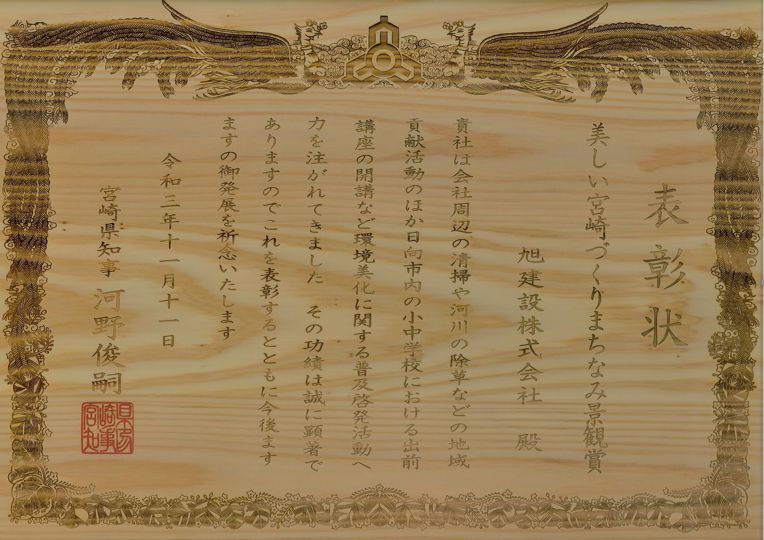 表彰状
美しい宮崎づくりまちなみ景観賞
旭建設株式会社 殿
貴社は会社周辺の清掃や河川の除草などの地域
貢献活動のほか日向市内の小中学校における出前
講座の開講など環境美化に関する普及啓発活動へ
力を注がれてきました その功績は誠に顕著で
ありますのでこれを表彰するとともに今後ます
ますの御発展を祈念いたします
令和三年十一月十一日
宮崎県知事 河野俊嗣